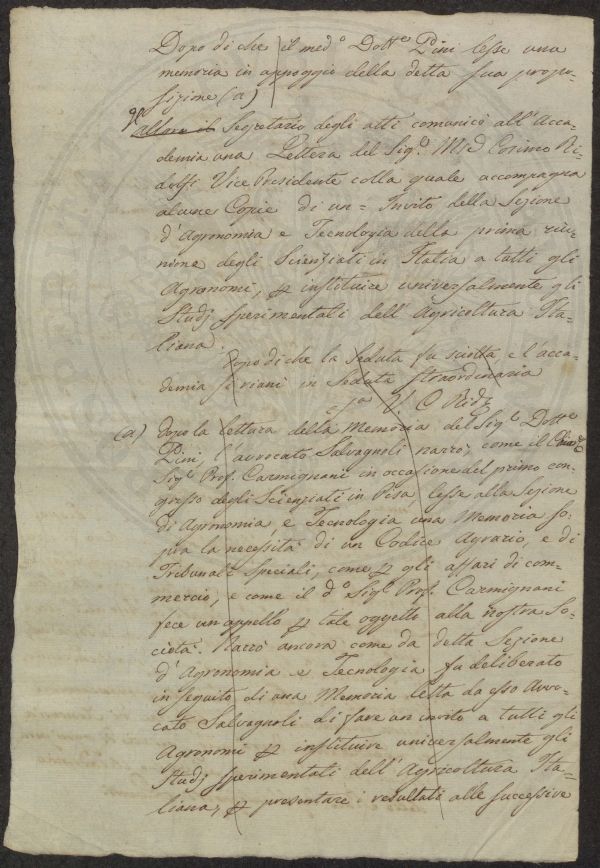 Dopo di che il med.º Dott.e Pini lesse una
memoria in appoggio della detta sua propo-
sizione (a)
Il
allora il Segretario degli atti comunicò all'Acca-
demia una Lettera del Sig.e Cosimo Ri-
dolfi Vice Presidente colla quale accompagna
alcune Copie di un= Invito della Sezione
d'Agronomia e Tecnologia della prima riu-
nione degli Scienziati in Italia a tutti gli
Agronomi, instituire universalmente gli
Studj sperimentali dell'Agricoltura Ita-
liana.
Dopo di che la Seduta fu sciolta, e l'acca-
demia si riunì in Seduta straordinaria
V. C. Ridi
(a) dopo la lettura della Memoria del Sig.e Dott.e
Pini, l'avvocato Salvagnoli narrò, come il
Sig.e Prof. Carmignani in occasione del primo con-
gresso degli Scienziati in Pisa, lesse alla Sezione
di Agronomia, e Tecnologia una Memoria so-
pra la necessità di un Codice Agrario, e di
Tribunali Speciali, come gli affari di com-
mercio, e come il d.º Sig.e Prof. Carmignani
fece un appello tale oggetto alla nostra So-
cietà. Narrò ancora come da detta Sezione
d'Agronomia e Tecnologia fu deliberato
in seguito di una Memoria letta da esso Avvo-
cato Salvagnoli di fare un invito a tutti gli
Agronomi instituire universalmente gli
Studj sperimentali dell'Agricoltura Ita-
liana, presentare i resultati alle successive